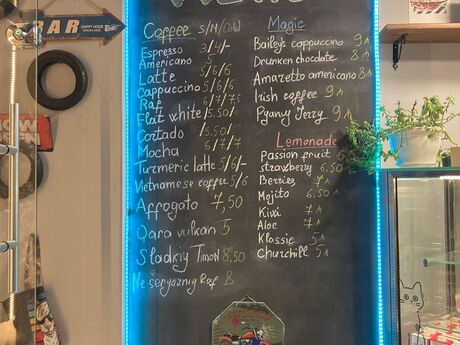 BAR
HAPPY HOUR
Coffee S/N/Cow
Espresso 3/4/-
Americano 5
Latte 5/6/6
Cappuccino 5/6/6
Raf 6/7/75
Flat white /5.50/
Cortado /5.50/
Mocha 6/7/7
Turmeric latte 5/6/-
Vietnamese coffee 5/6
Affogato 7,50
Oara vulkan 5
Sladkiy Timon 8,50
Ne seryozniy Raf 8
Magic
Bailey's cappuccino 9
Drunken chocolate 8
Amaretto americano 8
Irish coffee 9
Pyany Jerry 9
Lemonade
Passion fruit
strawberry 6,50
Berries 7
Mojito 6,50
Kiwi 7
Aloe 7
Klassic 5
Churchill 5